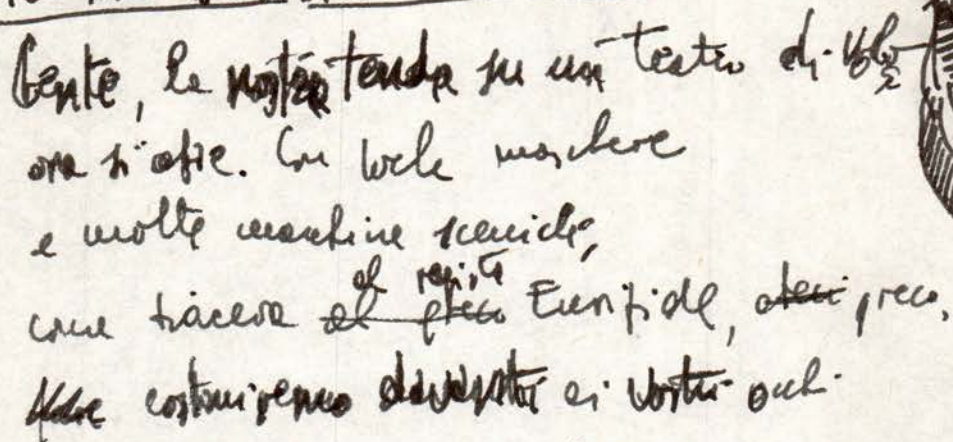 Gente, la nostra tenda su un teatro di
ora si apre. Con belle maschere
e molte macchine sceniche,
come piaceva al greco al regista Euripide, greco,
costruiremo davanti ai vostri occhi